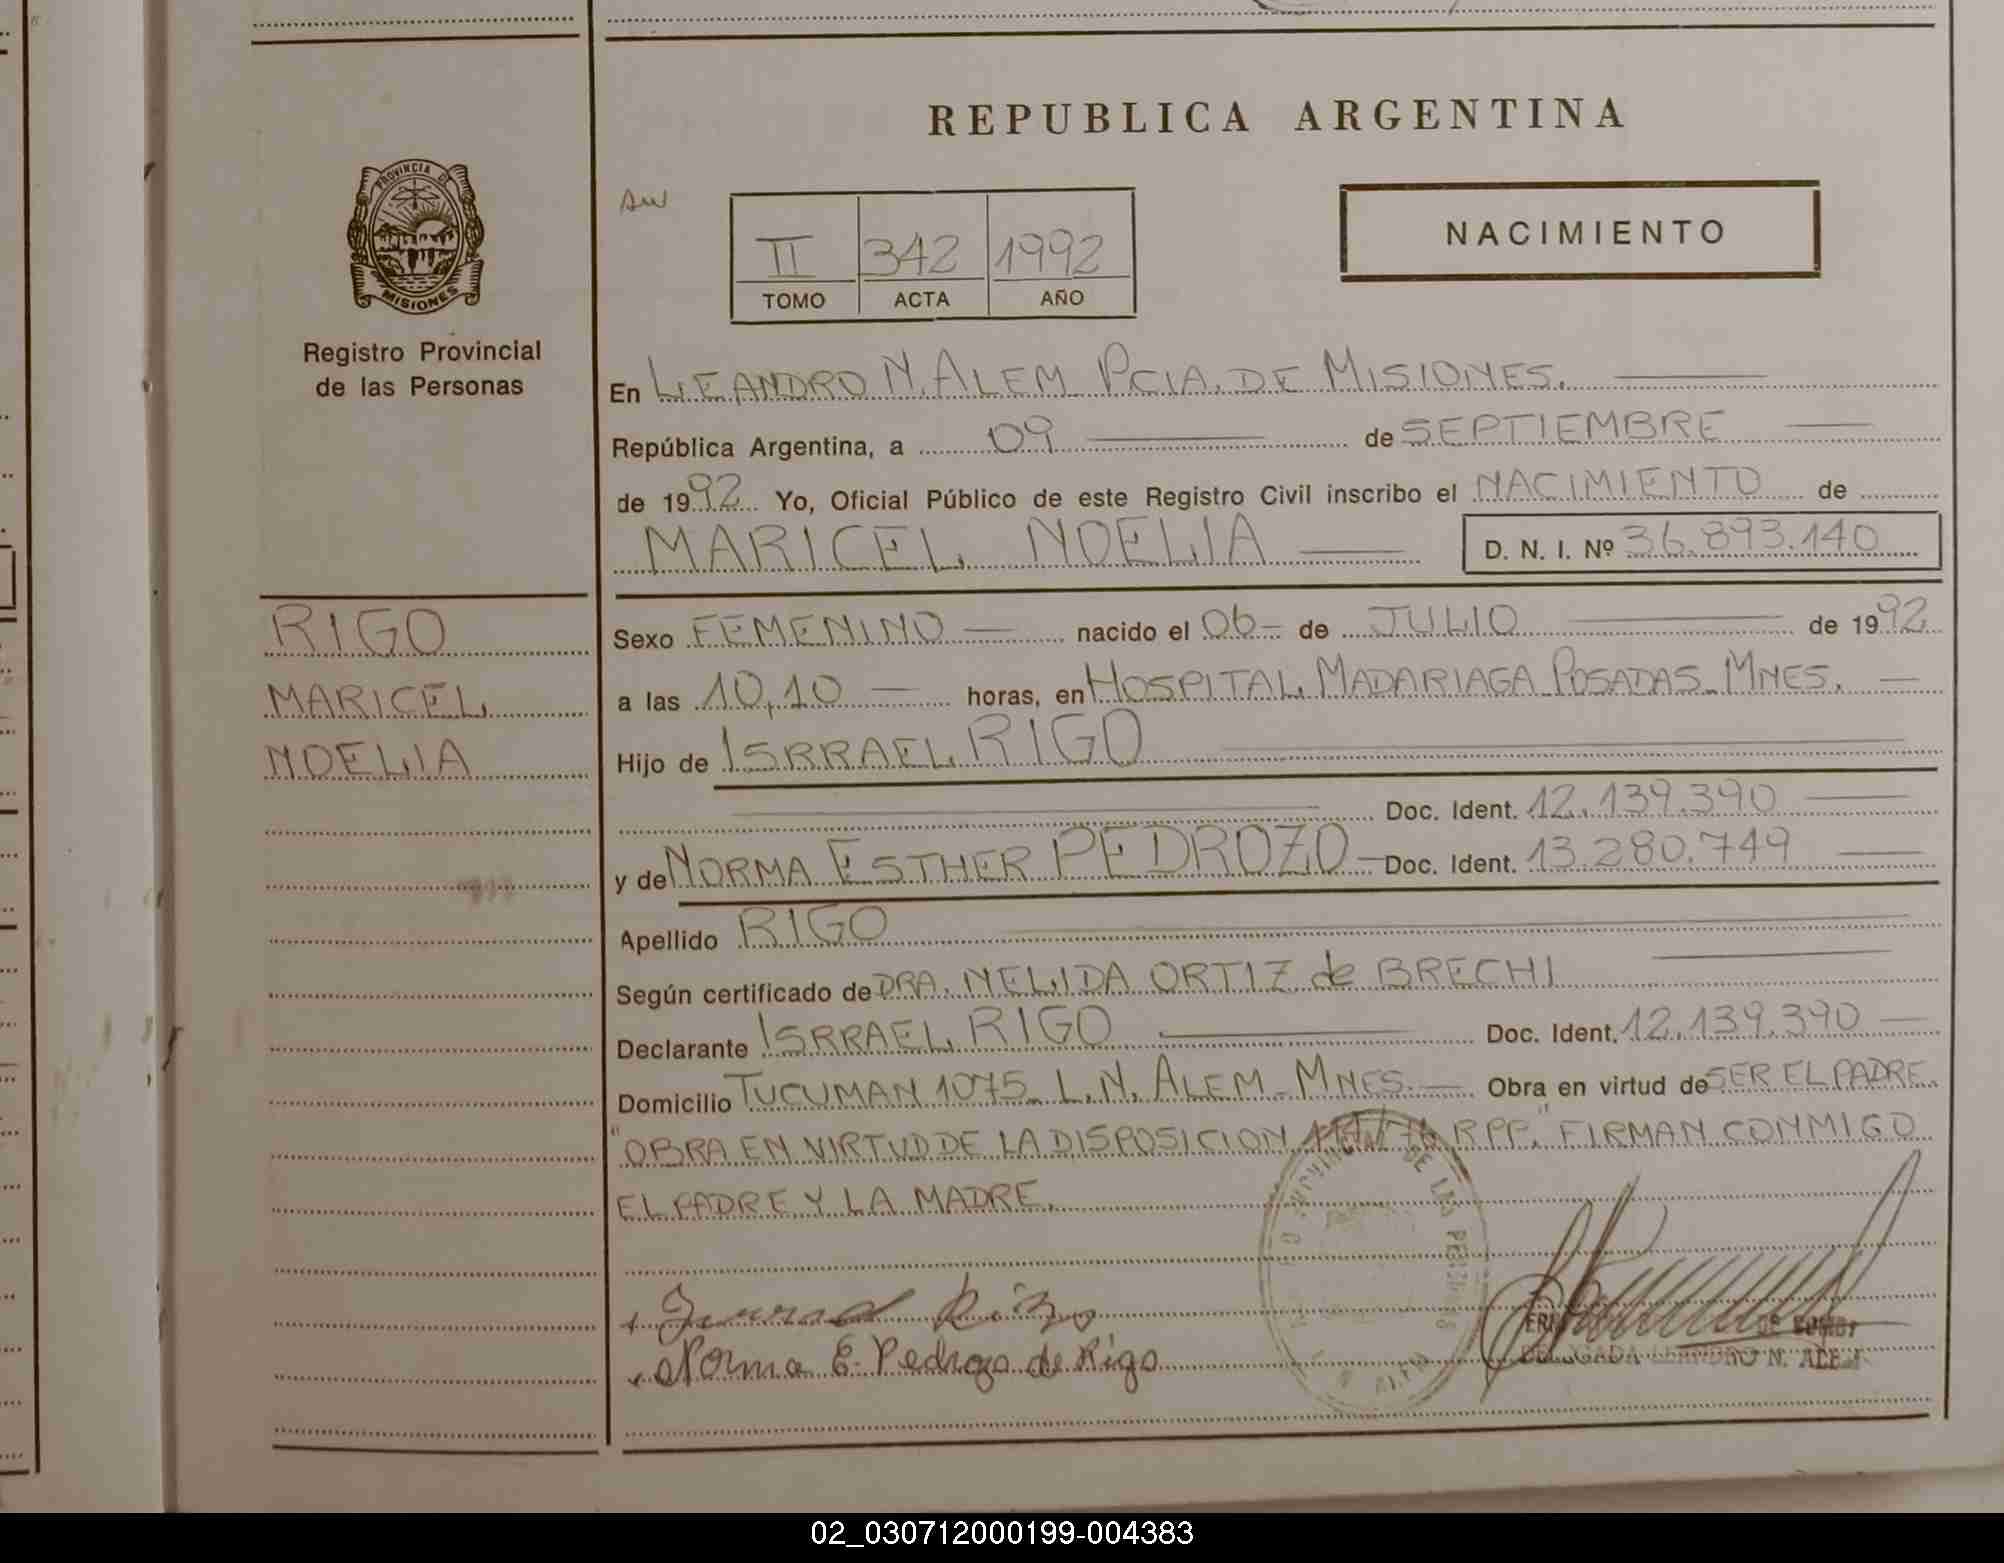 REPUBLICA ARGENTINA
PROVINCIA DE
MISIONES
Registro Provincial
de las Personas
AW
II 342 1992
TOMO ACTA AÑO
NACIMIENTO
En LEANDRO N. ALEM PCIA. DE MISIONES.
República Argentina, a 09 de SEPTIEMBRE
de 1992 Yo, Oficial Público de este Registro Civil inscribo el NACIMIENTO de
MARICEL NOELIA D. N. I. Nº 36.893.140
RIGO
MARICEL
NOELIA
Sexo FEMENINO nacido el 06 de JULIO de 1992
a las 10,10 horas, en HOSPITAL MADARIAGA POSADAS MNES.
Hijo de ISRRAEL RIGO
Doc. Ident. 12.139.390
y de NORMA ESTHER PEDROZO Doc. Ident. 13.280.749
Apellido RIGO
Según certificado de DRA. NELIDA ORTIZ de BRECHI
Declarante ISRRAEL RIGO Doc. Ident. 12.139.390
Domicilio TUCUMAN 1075 L.N. ALEM - MNES. Obra en virtud de SER EL PADRE.
"OBRA EN VIRTUD DE LA DISPOSICION RPP." FIRMAN CONMIGO
EL PADRE Y LA MADRE.
DE LAS PERSONAS
Norma E. Pedrozo de Rigo
DELEGADA LEANDRO N. ALEM
02_030712000199-004383